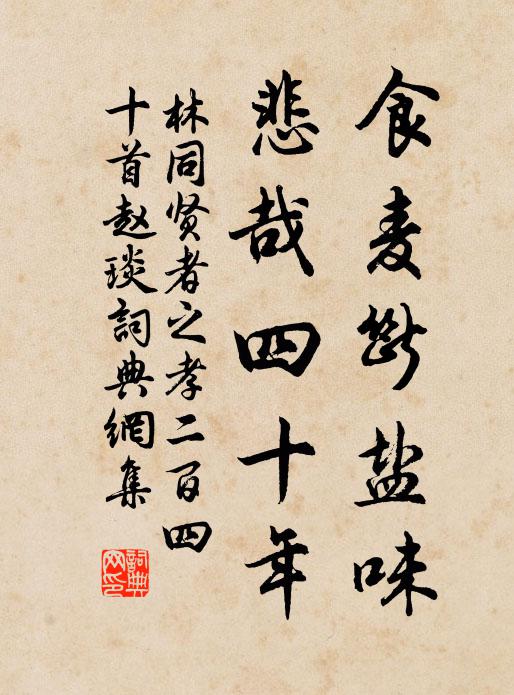 食麦断盐味
悲哉四十年
林同贤者之孝二百四
十首赵琰词典網集
詞典
网印